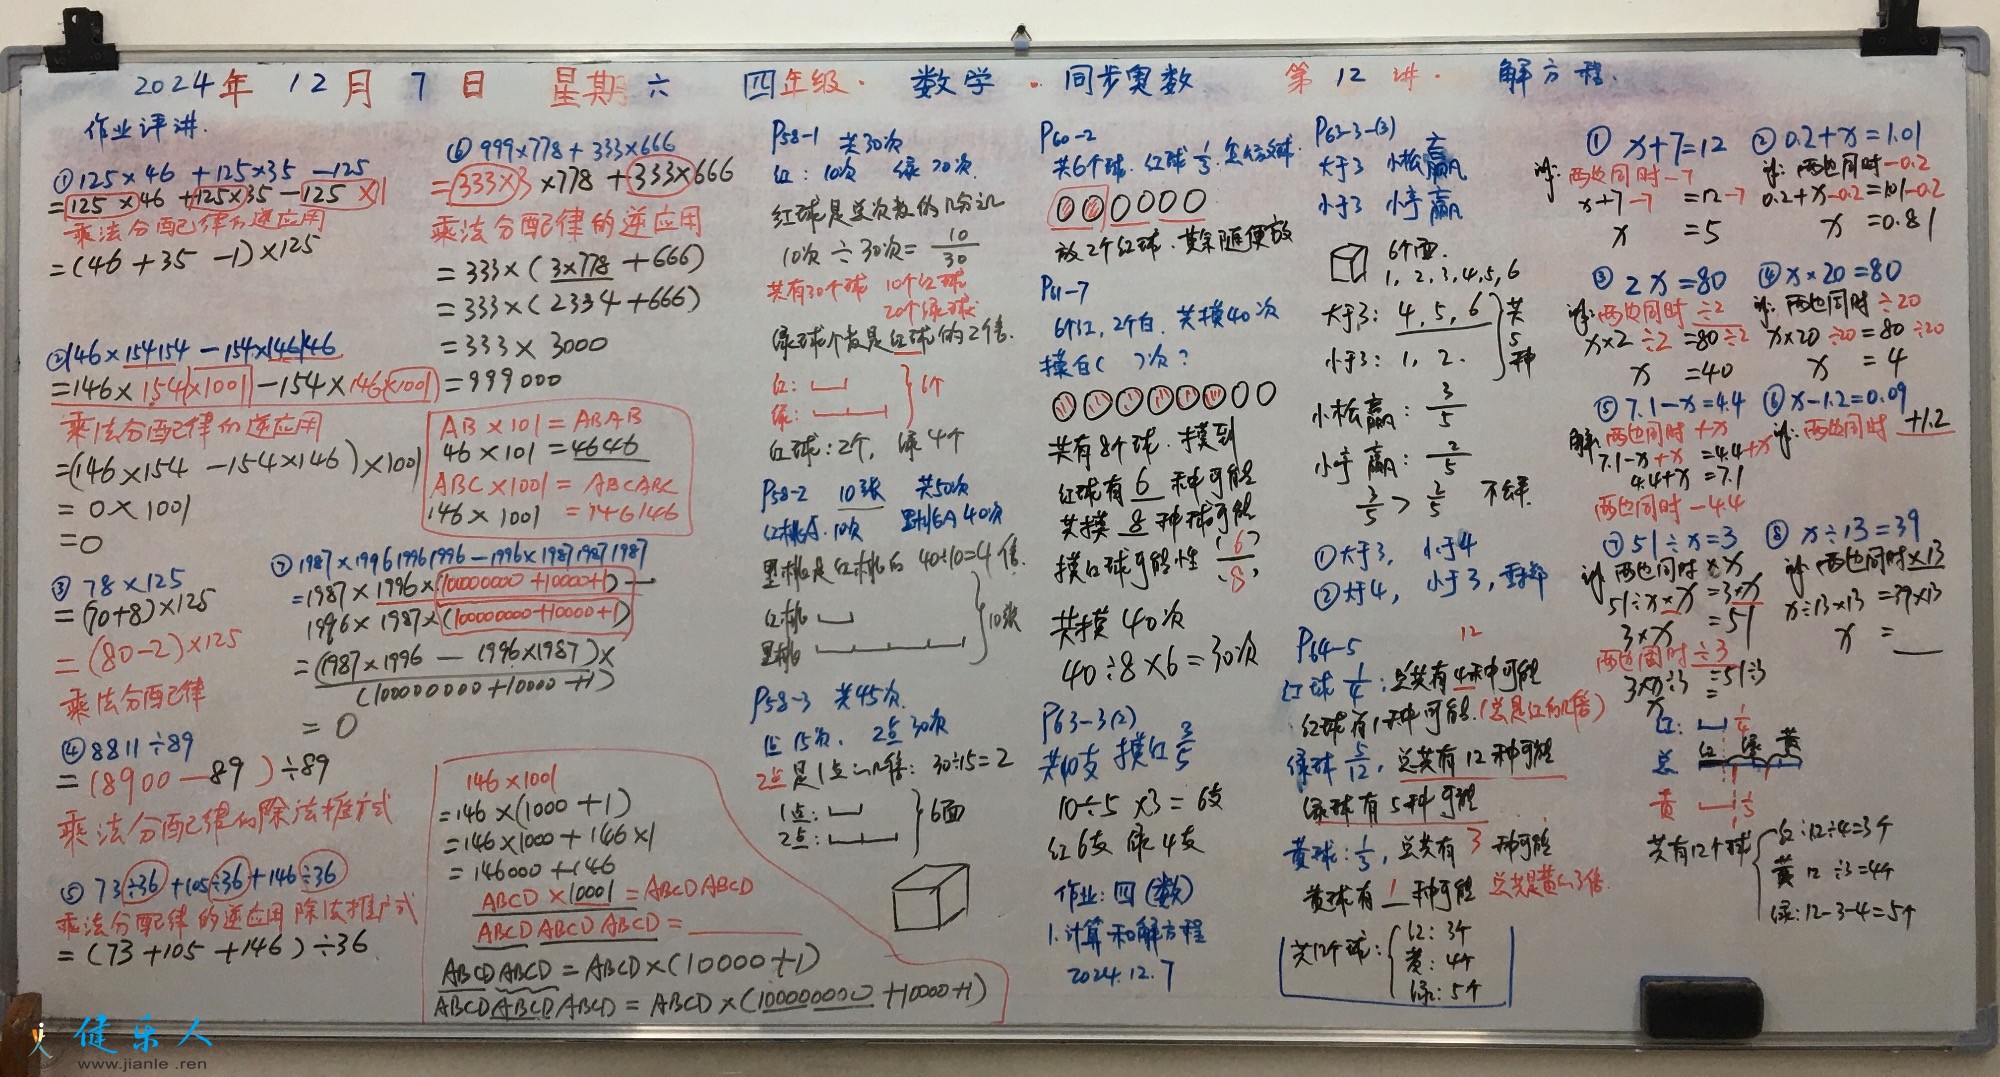 2024年 12月 7日 星期六 四年级· 数学· 同步奥数 第12讲· 解方程.
作业评讲.
①125×46 +125×35 -125
=125×46 +125×35-125×1
乘法分配律的逆应用
=(46+35-1)×125
②146×154154 -154×146146
=146×154×1001-154×146×1001
乘法分配律的逆应用
=(146×154 -154×146)×1001
=0×1001
=0
③ 78×125
=(70+8)×125
=(80-2)×125
乘法分配律
④8811÷89
=(8900-89)÷89
乘法分配律的除法推广式
⑤ 73÷36+105÷36+146÷36
乘法分配律的逆应用除法推广式
=(73+105+146)÷36
⑥999×778+333×666
=333×3×778+333×666
乘法分配律的逆应用
=333×(3×778+666)
=333×(2334+666)
=333×3000
=999000
AB×101=ABAB
46×101=4646
ABC×1001=ABCABC
146×1001=146146
⑦1987×199619961996-1996×198719871987
=1987×1996×(100000000+10000+1)-
1996×1987×(100000000+10000+1)
=(1987×1996-1996×1987)×
(100000000+10000+1)
=0
146×1001
=146×(1000+1)
=146×1000+146×1
=146000+146
ABCD×10001=ABCDABCD
ABCDABCDABCD=
ABCDABCD=ABCD×(10000+1)
ABCDABCDABCD=ABCD×(100000000+10000+1)
P58-1 共30次
红:10次 绿20次.
红球是总次数的几分之几
10次÷30次=10/30
共有30个球 10个红球
20个绿球
绿球个数是红球的2倍.
红: 6个
绿:
红球:2个, 绿4个
P58-2 10张 共50次
红桃A:10次 黑桃A40次
黑桃是红桃的 40÷10=4倍.
红桃 10张
黑桃
P58-3 共45次.
1点15次. 2点30次
2点是1点的几倍:30÷15=2
1点: 6面
2点:
P60-2
共6个球.红球1/3.
放2个红球.其余随便放
P61-7
6个红,2个白.共摸40次
摸白( )次?
共有8个球.摸到
红球有6种可能
共摸8种球可能
摸红球可能性(6)/(8)
共摸40次
40÷8×6=30次
P63-3(2)
共10支 摸红3/5
10÷5×3=6支
红6支 绿4支
作业:四(数)
1.计算和解方程
2024.12.7
P63-3-(3)
大于3 小松赢
小于3 小亭赢
6个面.
1,2,3,4,5,6
大于3:4,5,6 共5种
小于3:1,2.
小松赢:3/5
小亭赢:2/5
3/5>2/5
①大于3, 小于4
②大于4, 小于3,
P64-5 12
红球1/4:总共有4种可能
红球有1种可能.(总是红的几倍)
绿球5/12,总共有12种可能
绿球有5种可能
黄球:1/3,总共有3种可能
黄球有1种可能 总共是黄的3倍.
共12个球: 红:3个
黄:4个
绿:5个
① x+7=12
解:两边同时-7
x+7-7=12-7
x=5
② 0.2+x=1.01
解:两边同时-0.2
0.2+x-0.2=1.01-0.2
x=0.81
③ 2x=80
解:两边同时÷2
x×2÷2=80÷2
x=40
④x×20=80
解:两边同时÷20
x×20÷20=80÷20
x=4
⑤7.1-x=4.4
解:两边同时+x
7.1-x+x=4.4+x
4.4+x=7.1
两边同时-4.4
⑥x-1.2=0.09
解:两边同时+1.2
⑦51÷x=3
解:两边同时×x
51÷x×x=3×x
3×x=51
两边同时÷3
3×x÷3=51÷3
x=
⑧x÷13=39
解:两边同时×13
x÷13×13=39×13
x=
红: 1/4
总 红 绿 黄
黄 1/3
共有12个球 红:12÷4=3个
黄12÷3=4个
绿:12-3-4=5个
健乐人
www.jianle.ren